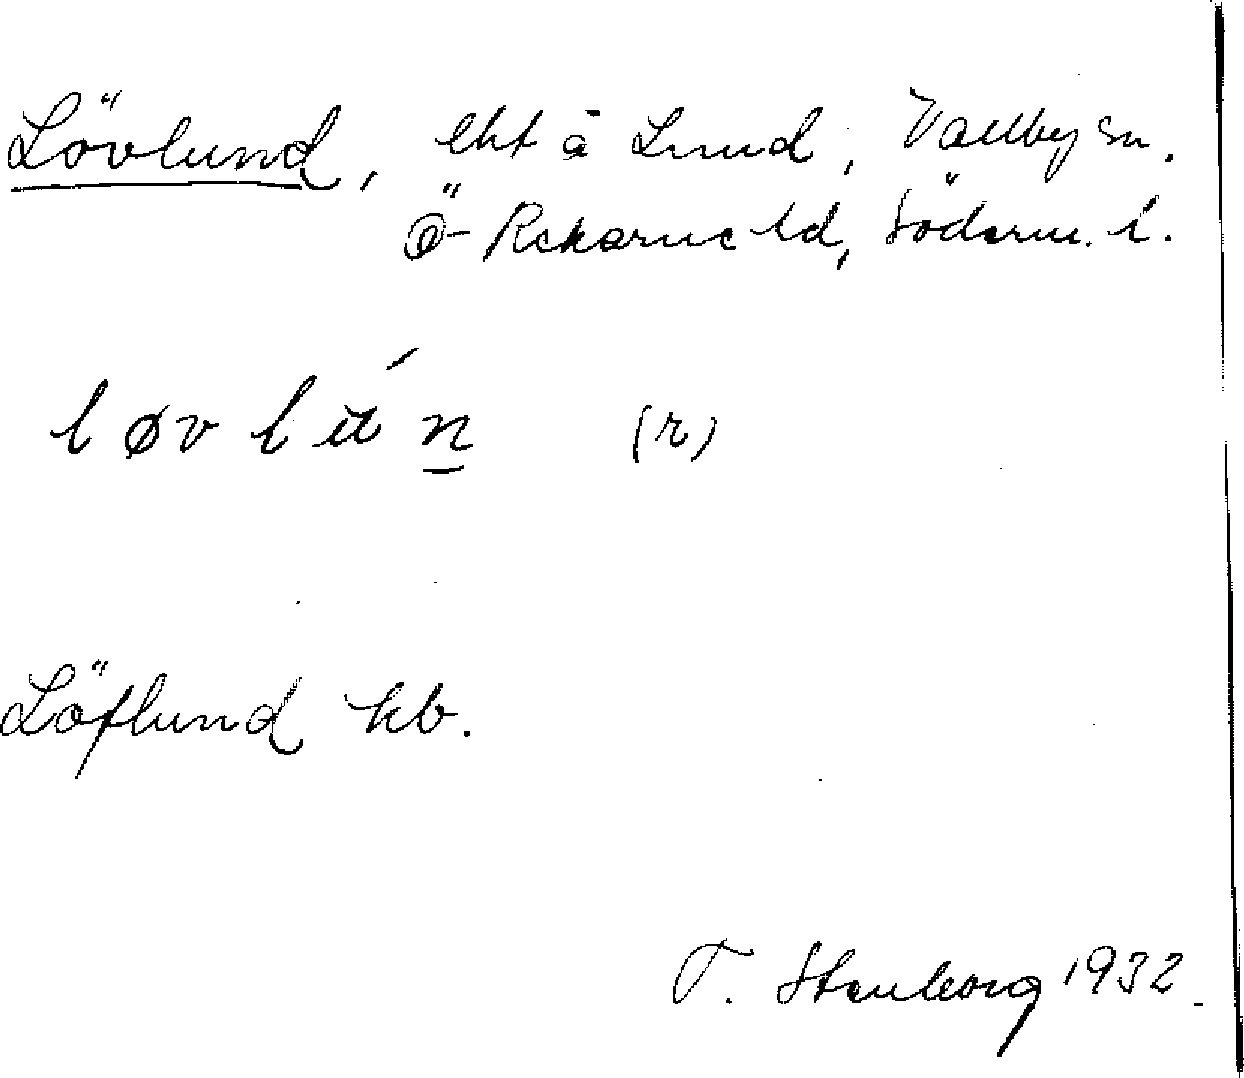 Lövlund, lht å Lund, Vallby sn.
Ö-Rekarne hd, Söderm. l.
løvlún (r)
Löflund kb.
T. Stenborg 1932.